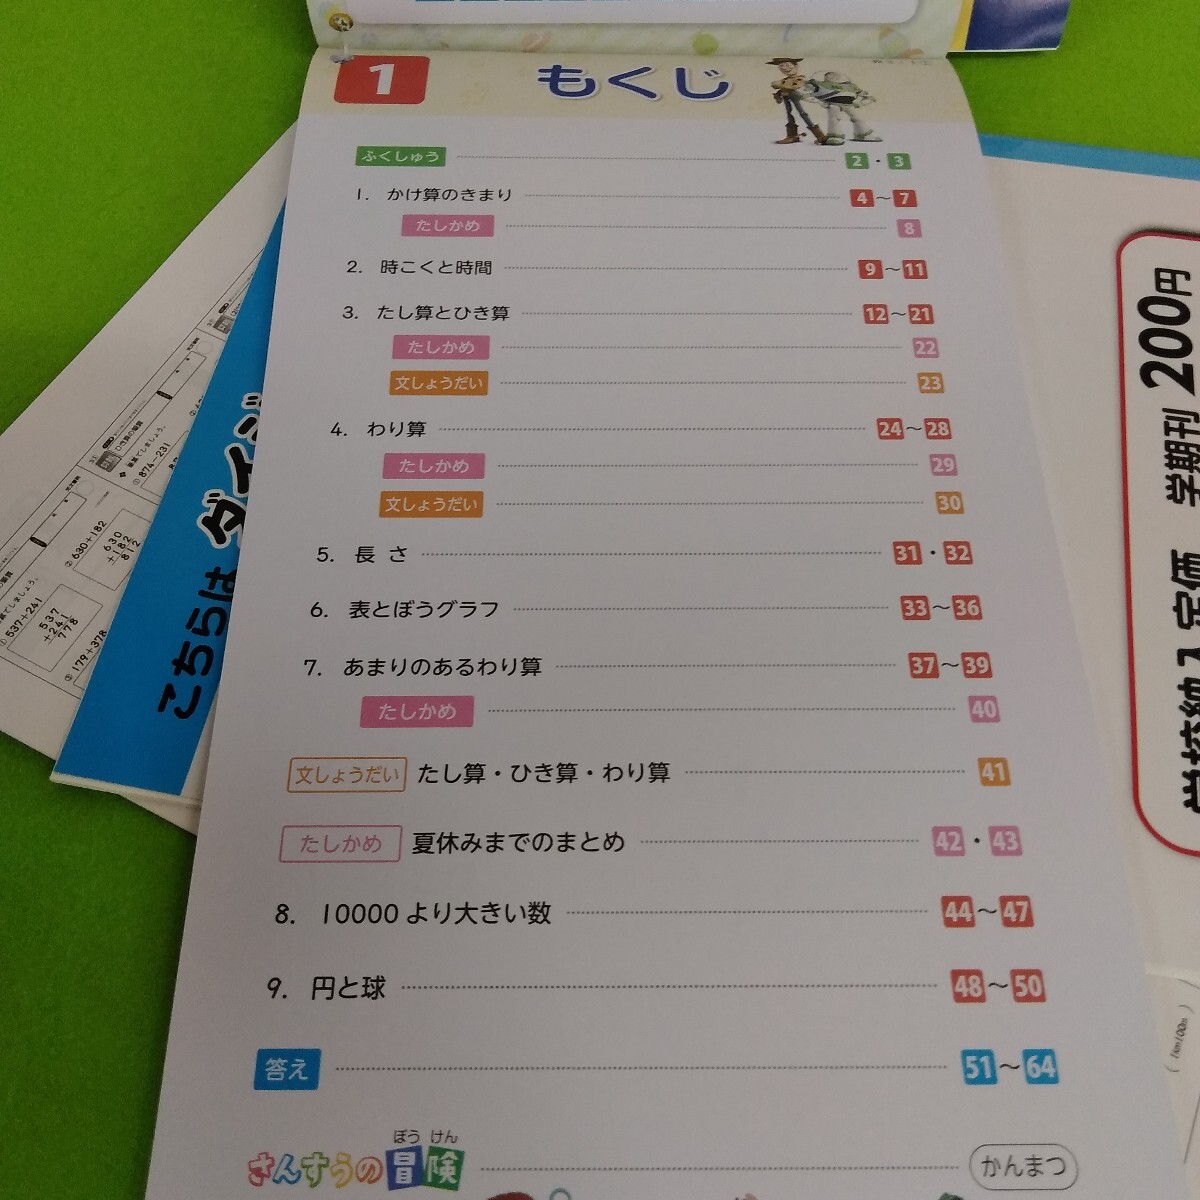 1 もくじ
ふくしゅう 2・3
1. かけ算のきまり 4〜7
たしかめ 8
2. 時こくと時間 9〜11
3. たし算とひき算 12〜21
たしかめ 22
文しょうだい 23
4. わり算 24〜28
たしかめ 29
文しょうだい 30
5. 長さ 31・32
6. 表とぼうグラフ 33〜36
7. あまりのあるわり算 37〜39
たしかめ 40
文しょうだい たし算・ひき算・わり算 41
たしかめ 夏休みまでのまとめ 42・43
8. 10000より大きい数 44〜47
9. 円と球 48〜50
答え 51〜64
ぼう けん
さんすうの冒険 かんまつ
こちらは ダイジ
学期刊 200円
学校納入定価
① 874-231
② 630+182
630
+182
812
① 537+241
537
+241
778
③ 179+378
(1km100m)